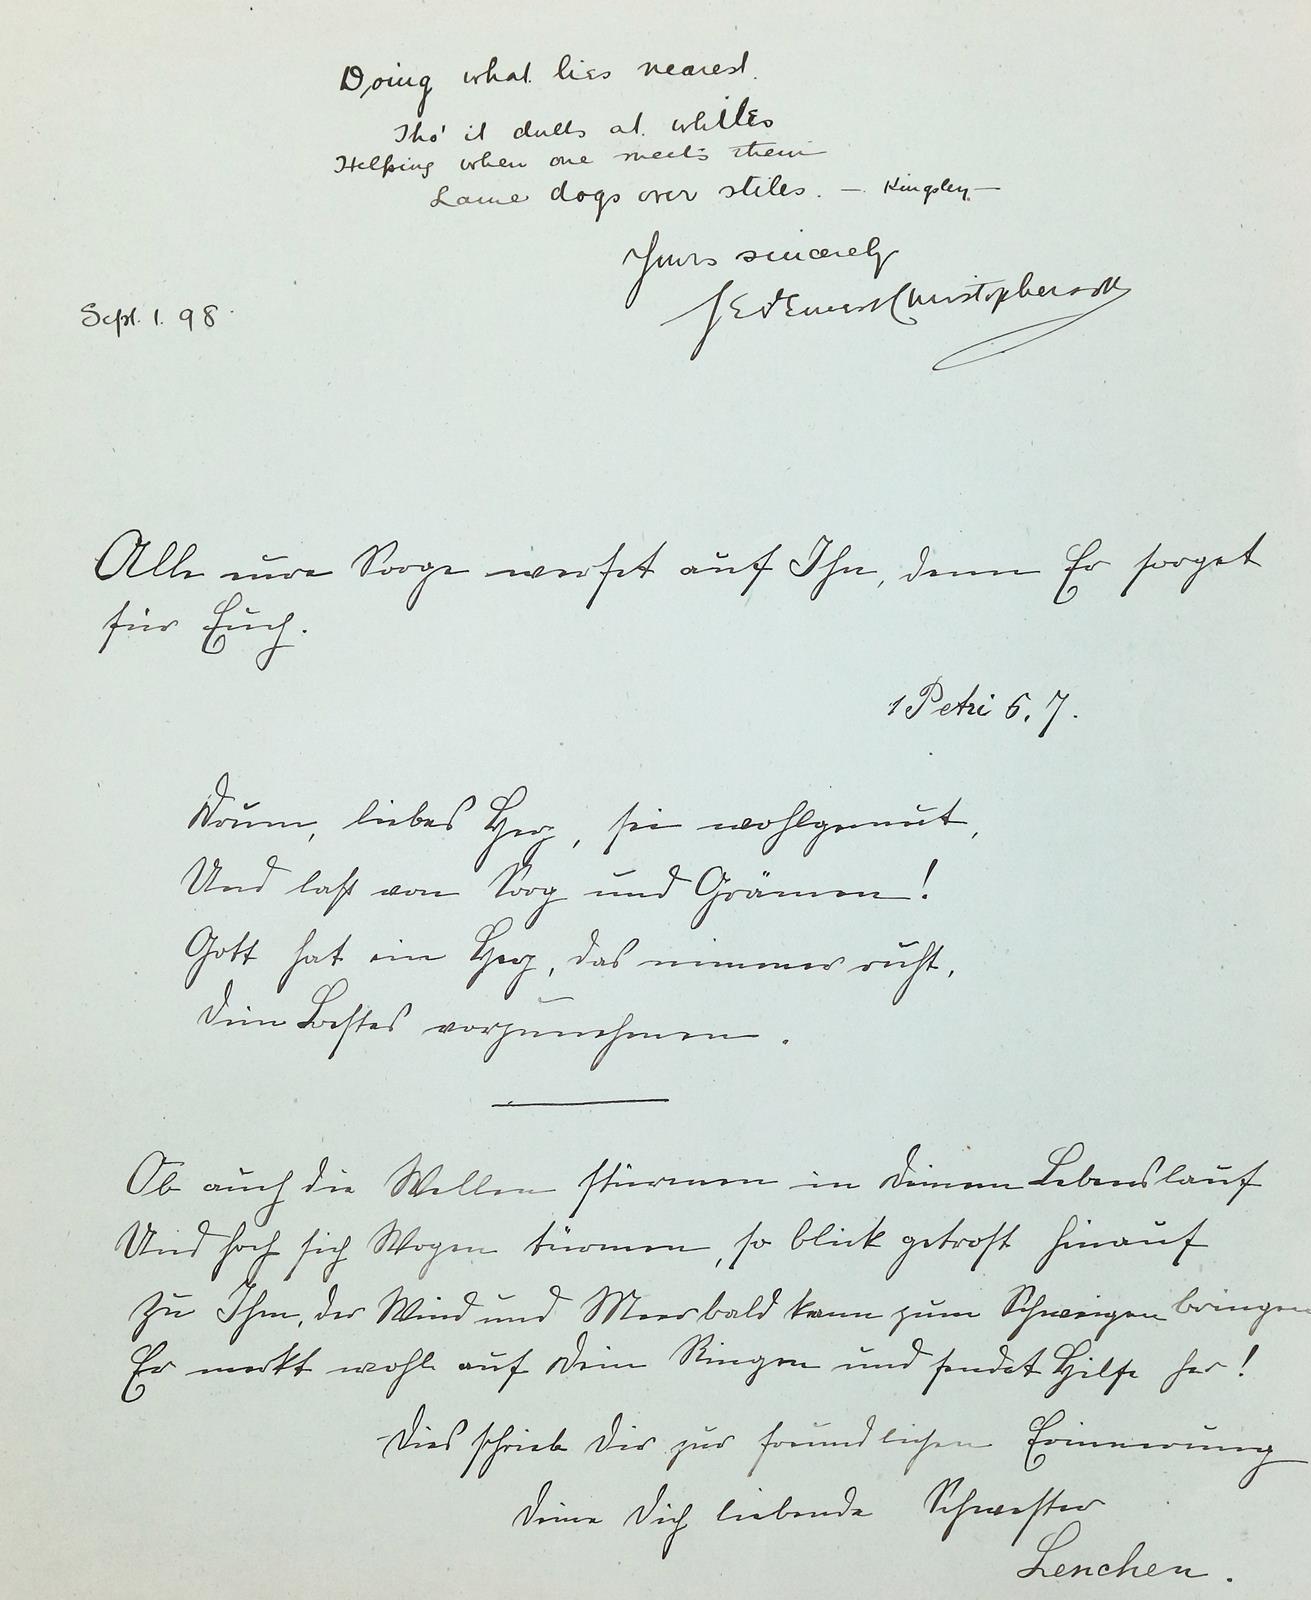 Doing what lies nearest.
Tho' it dulls at whiles
Helping when one meets them
Lame dogs over stiles. — Kingsley —
Yours sincerely
Sept. 1. 98.
Alle eure Sorge werfet auf Ihn, denn Er sorget
für Euch.
1 Petri 5, 7.
Drum, liebes Herz, sei wohlgemut,
Und laß von Sorg und Grämen!
Gott hat ein Herz, das nimmer ruht,
Dein Bestes vorzunehmen.
Ob auch die Wellen stürmen in Deinem Lebenslauf
Und hoch sich Wogen türmen, so blick getrost hinauf
Zu Ihm, der Wind und Meer bald kann zum Schweigen bringen
Er merkt wohl auf Dein Ringen und sendet Hilfe her!
Dies schrieb Dir zur freundlichen Erinnerung
Deine Dich liebende Schwester
Lenchen.